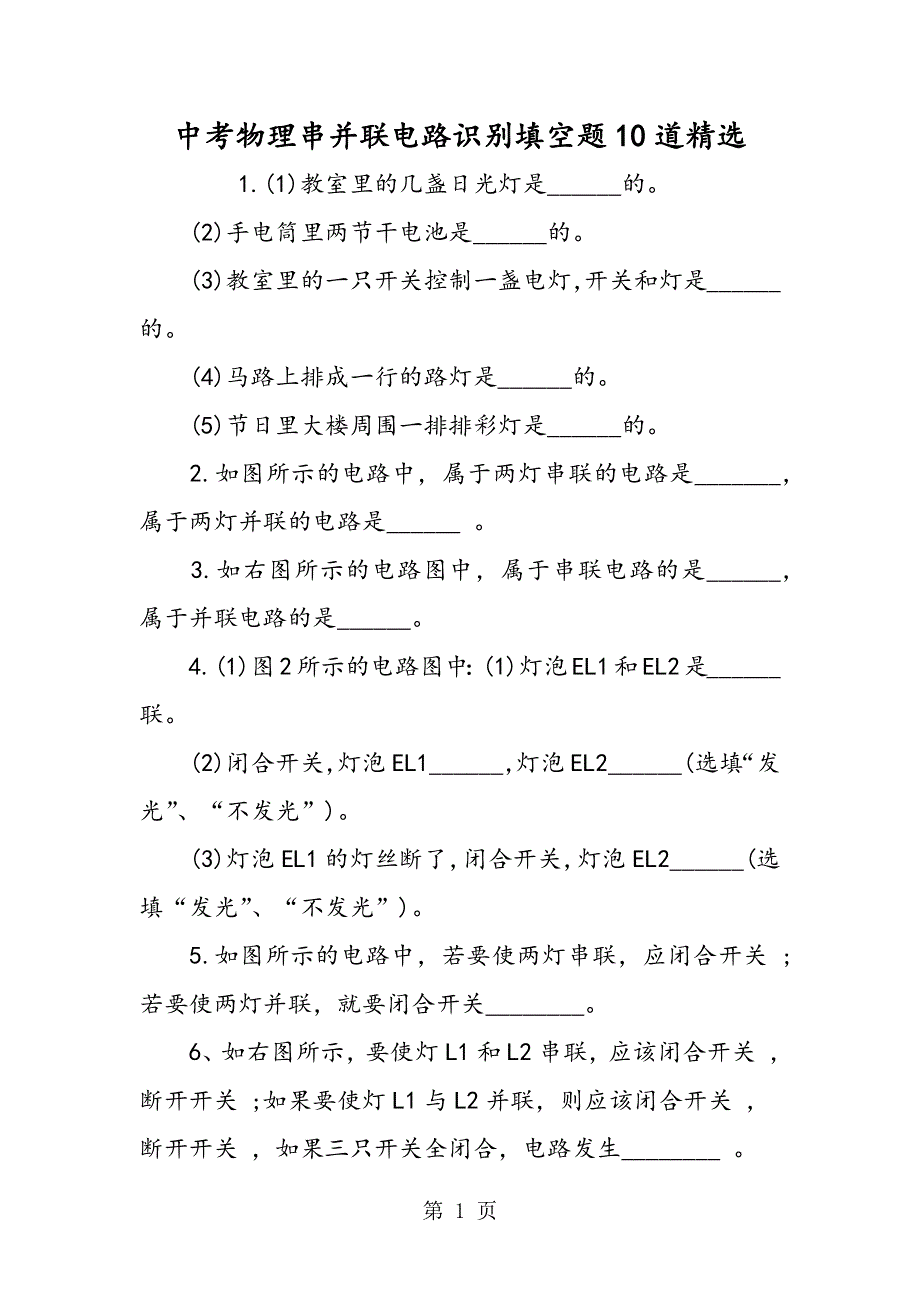 中考物理串并联电路识别填空题10道精选
1.(1)教室里的几盏日光灯是______的。
(2)手电筒里两节干电池是______的。
(3)教室里的一只开关控制一盏电灯,开关和灯是______
的。
(4)马路上排成一行的路灯是______的。
(5)节日里大楼周围一排排彩灯是______的。
2.如图所示的电路中，属于两灯串联的电路是_______，
属于两灯并联的电路是______ 。
3.如右图所示的电路图中，属于串联电路的是______，
属于并联电路的是______。
4.(1)图2所示的电路图中:(1)灯泡EL1和EL2是______
联。
(2)闭合开关,灯泡EL1______,灯泡EL2______(选填“发
光”、“不发光”)。
(3)灯泡EL1的灯丝断了,闭合开关,灯泡EL2______(选
填“发光”、“不发光”)。
5.如图所示的电路中，若要使两灯串联，应闭合开关 ;
若要使两灯并联，就要闭合开关________。
6、如右图所示，要使灯L1和L2串联，应该闭合开关 ，
断开开关 ;如果要使灯L1与L2并联，则应该闭合开关 ，
断开开关 ，如果三只开关全闭合，电路发生________ 。
第 1 页